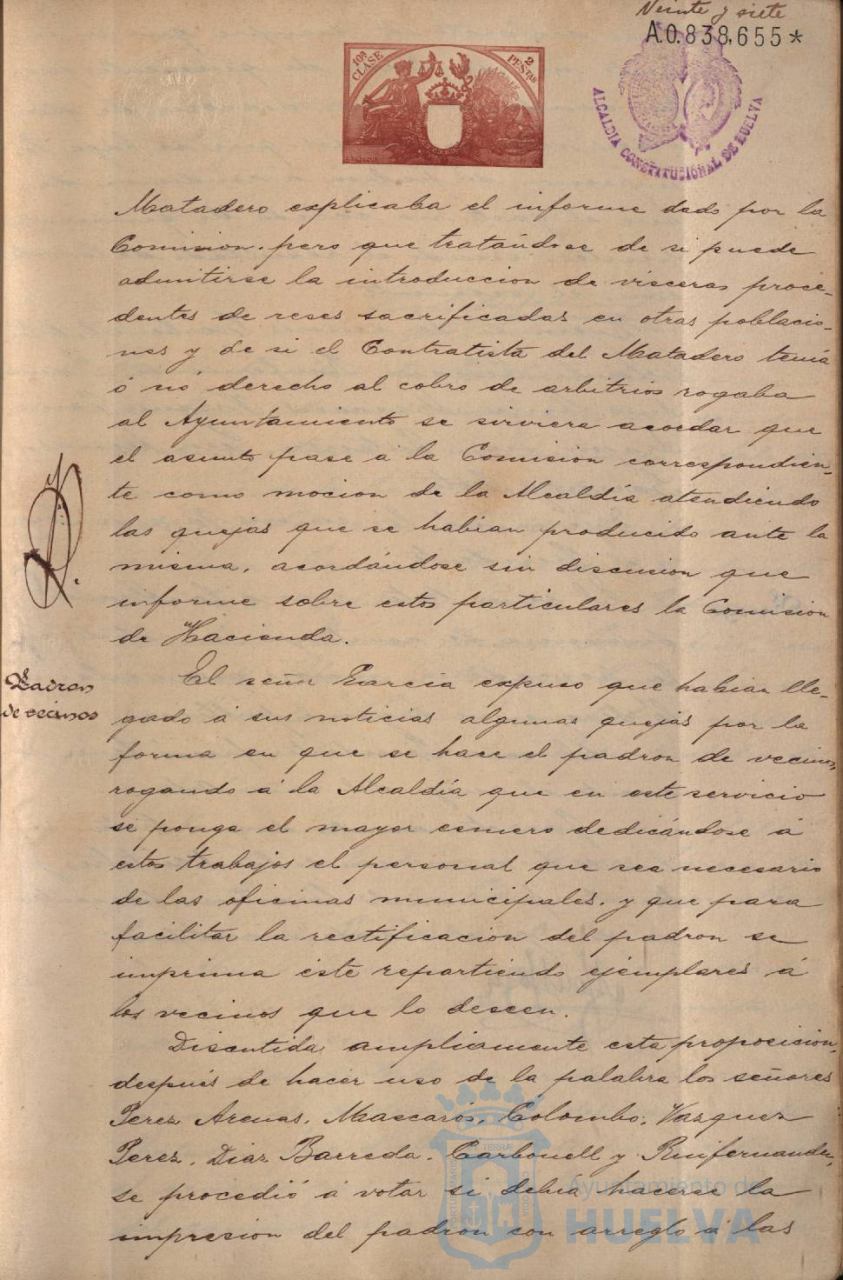 Veinte y siete
A.0.838,655*
10ª CLASE
2 PESTAS
ALCALDIA CONSTITUCIONAL DE HUELVA
Matadero explicaba el informe dado por la
Comision. pero que tratándose de si puede
admitirse la introduccion de visceras proce-
dentes de reses sacrificadas en otras poblacio-
nes y de si el Contratista del Matadero tenía
ó nó derecho al cobro de arbitrios rogaba
al Ayuntamiento se sirviera acordar que
el asunto pase á la Comision correspondien-
te como mocion de la Alcaldía atendiendo
las quejas que se habian producido ante la
misma, acordándose sin discusion que
informe sobre estos particulares la Comision
de Hacienda.
Padron
de vecinos
El señor Garcia expuso que habian lle-
gado á sus noticias algunas quejas por la
forma en que se hace el padron de vecinos,
rogando á la Alcaldía que en este servicio
se ponga el mayor esmero dedicándose á
estos trabajos el personal que sea necesario
de las oficinas municipales. y que para
facilitar la rectificacion del padron se
imprima éste repartiendo ejemplares á
los vecinos que lo deseen.
Discutida ampliamente esta proposicion,
después de hacer uso de la palabra los señores
Perez Arenas, Mascarós, Colombo, Vazquez
Perez, Diaz Barreda, Carbonell y Ruifernandez,
se procedió á votar si debia hacerse la
impresion del padron con arreglo á las
Ayuntamiento de
HUELVA